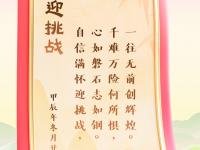 迎挑战
自信满怀迎挑战，
心如磐石志如钢。
千难万险何所惧，
一往无前创辉煌。
甲辰年冬月